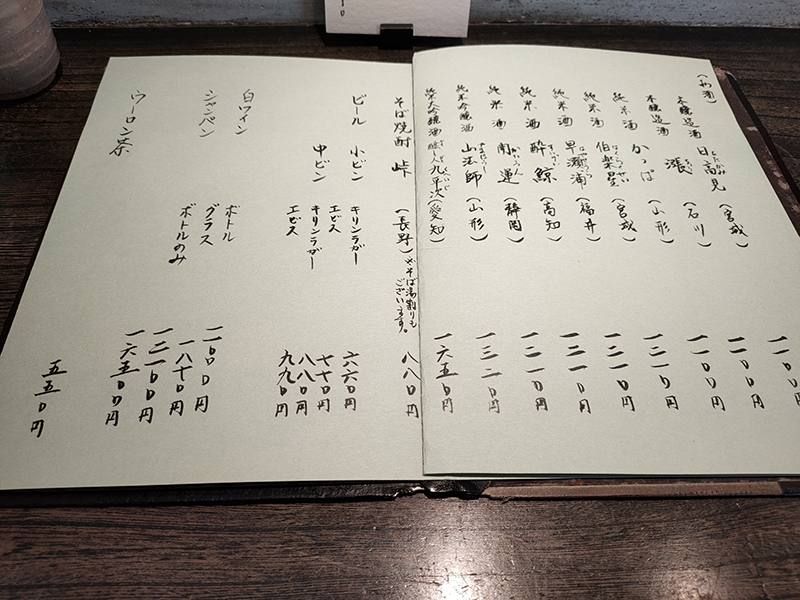 (お酒)
本醸造酒 日高見 (宮城) 一一〇〇円
ひたかみ
本醸造酒 漲 (石川) 一一〇〇円
本醸造酒 かっぱ (山形) 一一〇〇円
純米酒 伯楽星 (宮城) 一二一〇円
はくらくせい
純米酒 早瀬浦 (福井) 一二一〇円
はやせうら
純米酒 酔鯨 (高知) 一二一〇円
すいげい
純米酒 開運 (静岡) 一二一〇円
かいうん
純米吟醸酒 山法師 (山形) 一三二〇円
やまほうし
純米大吟醸酒 醸し人九平次 (愛知) 一六五〇円
そば焼酎 峠 (長野) ※そば湯割りも 八八〇円
ございます。
ビール 小ビン キリンラガー 六六〇円
エビス 七七〇円
中ビン キリンラガー 八八〇円
エビス 九九〇円
白ワイン ボトル
グラス
シャンペン ボトルのみ
一八七〇円
ウーロン茶 五五〇円